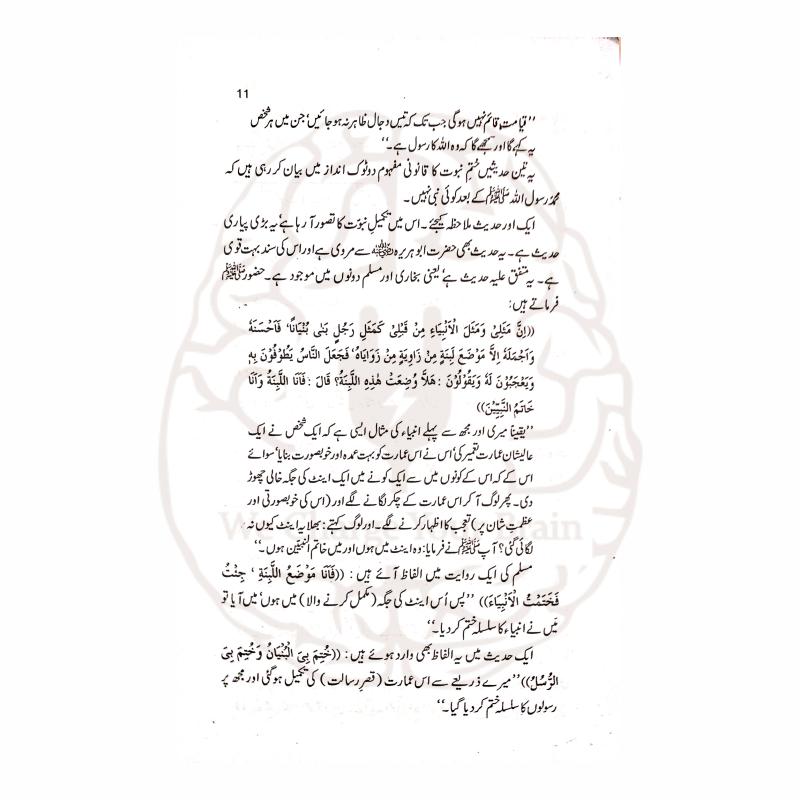 11
’’قیامت قائم نہیں ہوگی جب تک کہ تیس دجال ظاہر نہ ہو جائیں‘ جن میں ہر شخص
یہ کہے گا اور سمجھے گا کہ وہ اللہ کا رسول ہے۔‘‘
یہ تین حدیثیں ختم نبوت کا قانونی مفہوم دو ٹوک انداز میں بیان کر رہی ہیں کہ
محمد رسول اللہ ﷺ کے بعد کوئی نبی نہیں۔
ایک اور حدیث ملاحظہ کیجئے۔ اس میں تکمیلِ نبوت کا تصور آ رہا ہے‘ یہ بڑی پیاری
حدیث ہے۔ یہ حدیث بھی حضرت ابو ہریرہ رضی اللہ عنہ سے مروی ہے اور اس کی سند بہت قوی
ہے۔ یہ متفق علیہ حدیث ہے‘ یعنی بخاری اور مسلم دونوں میں موجود ہے۔ حضور ﷺ
فرماتے ہیں:
((اِنَّ مَثَلِیْ وَمَثَلَ الْاَنْبِیَاءِ مِنْ قَبْلِیْ کَمَثَلِ رَجُلٍ بَنٰی بُنْیَانًا‘ فَاَحْسَنَہٗ
وَاَجْمَلَہٗ اِلاَّ مَوْضِعَ لَبِنَۃٍ مِنْ زَاوِیَۃٍ مِنْ زَوَایَاہُ‘ فَجَعَلَ النَّاسُ یَطُوْفُوْنَ بِہٖ
وَیَعْجَبُوْنَ لَہٗ وَیَقُوْلُوْنَ : ھَلاَّ وُضِعَتْ ھٰذِہِ اللَّبِنَۃُ؟ قَالَ : فَاَنَا اللَّبِنَۃُ وَاَنَا
خَاتَمُ النَّبِیِّیْنَ))
’’یقیناً میری اور مجھ سے پہلے انبیاء کی مثال ایسی ہے کہ ایک شخص نے ایک
عالیشان عمارت تعمیر کی‘ اس نے اس عمارت کو بہت عمدہ اور خوبصورت بنایا‘ سوائے
اس کے کہ اس کے کونوں میں سے ایک کونے میں ایک اینٹ کی جگہ خالی چھوڑ
دی۔ پھر لوگ آ کر اس عمارت کے چکر لگانے لگے اور (اس کی خوبصورتی اور
عظمتِ شان پر) تعجب کا اظہار کرنے لگے۔ اور لوگ کہتے: بھلا یہ اینٹ کیوں نہ
لگائی گئی؟ آپ ﷺ نے فرمایا: وہ اینٹ میں ہوں اور میں خاتم النبیین ہوں۔‘‘
مسلم کی ایک روایت میں الفاظ آئے ہیں: ((فَاَنَا مَوْضِعُ اللَّبِنَۃِ ‘ جِئْتُ
فَخَتَمْتُ الْاَنْبِیَاءَ)) ’’پس اُس اینٹ کی جگہ (مکمل کرنے والا) میں ہوں‘ میں آیا تو
میں نے انبیاء کا سلسلہ ختم کر دیا۔‘‘
ایک حدیث میں یہ الفاظ بھی وارد ہوئے ہیں: ((خُتِمَ بِیَ الْبُنْیَانُ وَخُتِمَ بِیَ
الرُّسُلُ)) ’’میرے ذریعے سے اس عمارت (قصرِ رسالت) کی تکمیل ہو گئی اور مجھ پر
رسولوں کا سلسلہ ختم کر دیا گیا۔‘‘